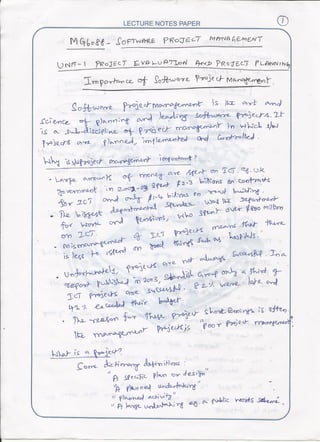 LECTURE NOTES PAPER
1
MG6088 - SOFTWARE PROJECT MANAGEMENT
UNIT-1 PROJECT EVALUATION AND PROJECT PLANNING
Importance of Software Project Management
Software project management is an art and
Science of planning and leading software projects. It
is a sub-discipline of project management in which s/w
Projects are planned, implemented and Controlled.
Why is s/w project management important?
Large amounts of money are spent on ICT. Eg. UK
government in 2002-03 spent £2.3 billions on contracts
for ICT and only £1.4 billions on road building
The biggest departmental spender was the Department
for work and Pensions, who spent over £800 million
on ICT.
Mismanagement of ICT projects means that there
is less to spend on good things such as hospitals.
Unfortunately, projects are not always successful. In a
report published in 2003, Standish Group only a third of
ICT Projects are successful. 82% were late and
43% exceeded their budget
The reason for these project shortcomings is often
the management projects poor project management
What is a project?
Some dictionary definitions:
"A specific plan or design"
"A planned undertaking"
"planned activity"
"A large undertaking eg. a public works scheme".